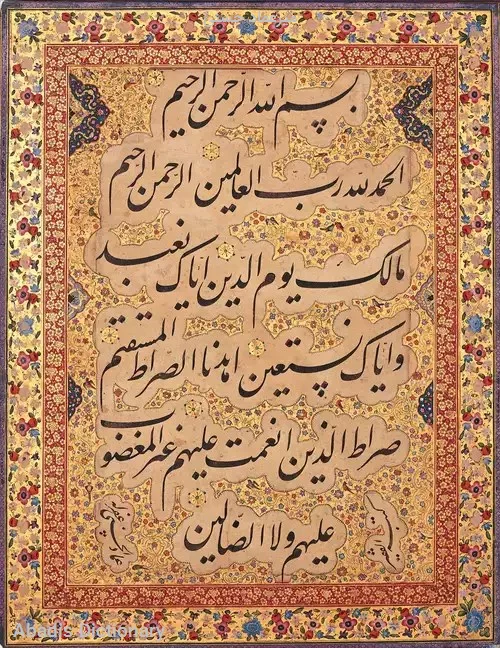 بسم الله الرحمن الرحیم
الحمد لله رب العالمین الرحمن الرحیم
مالک یوم الدین ایاک نعبد
وایاک نستعین اهدنا الصراط المستقیم
صراط الذین انعمت علیهم غیر المغضوب
علیهم ولا الضالین
Abadis Dictionary